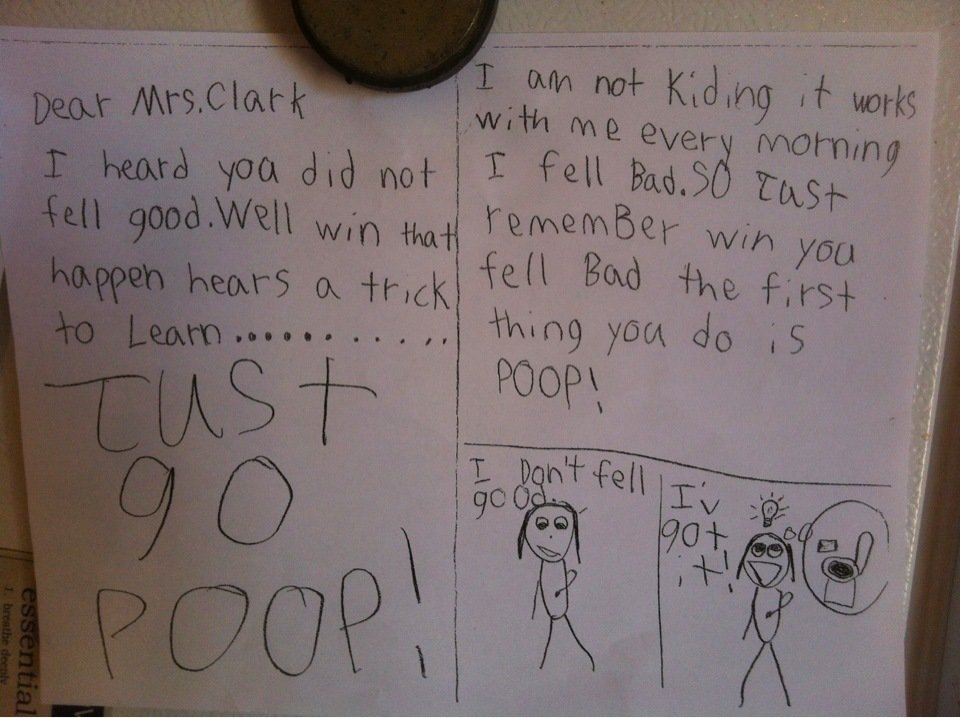 Dear Mrs.Clark
I heard you did not
fell good.Well win that
happen hears a trick
to Learn...........
Just
go
POOP!
I am not Kiding it works
with me every morning
I fell Bad.SO Just
rememBer win you
fell Bad the first
thing you do is
POOP!
I Don't fell
good.
I'v
got
it!
essential
1. breathe deeply